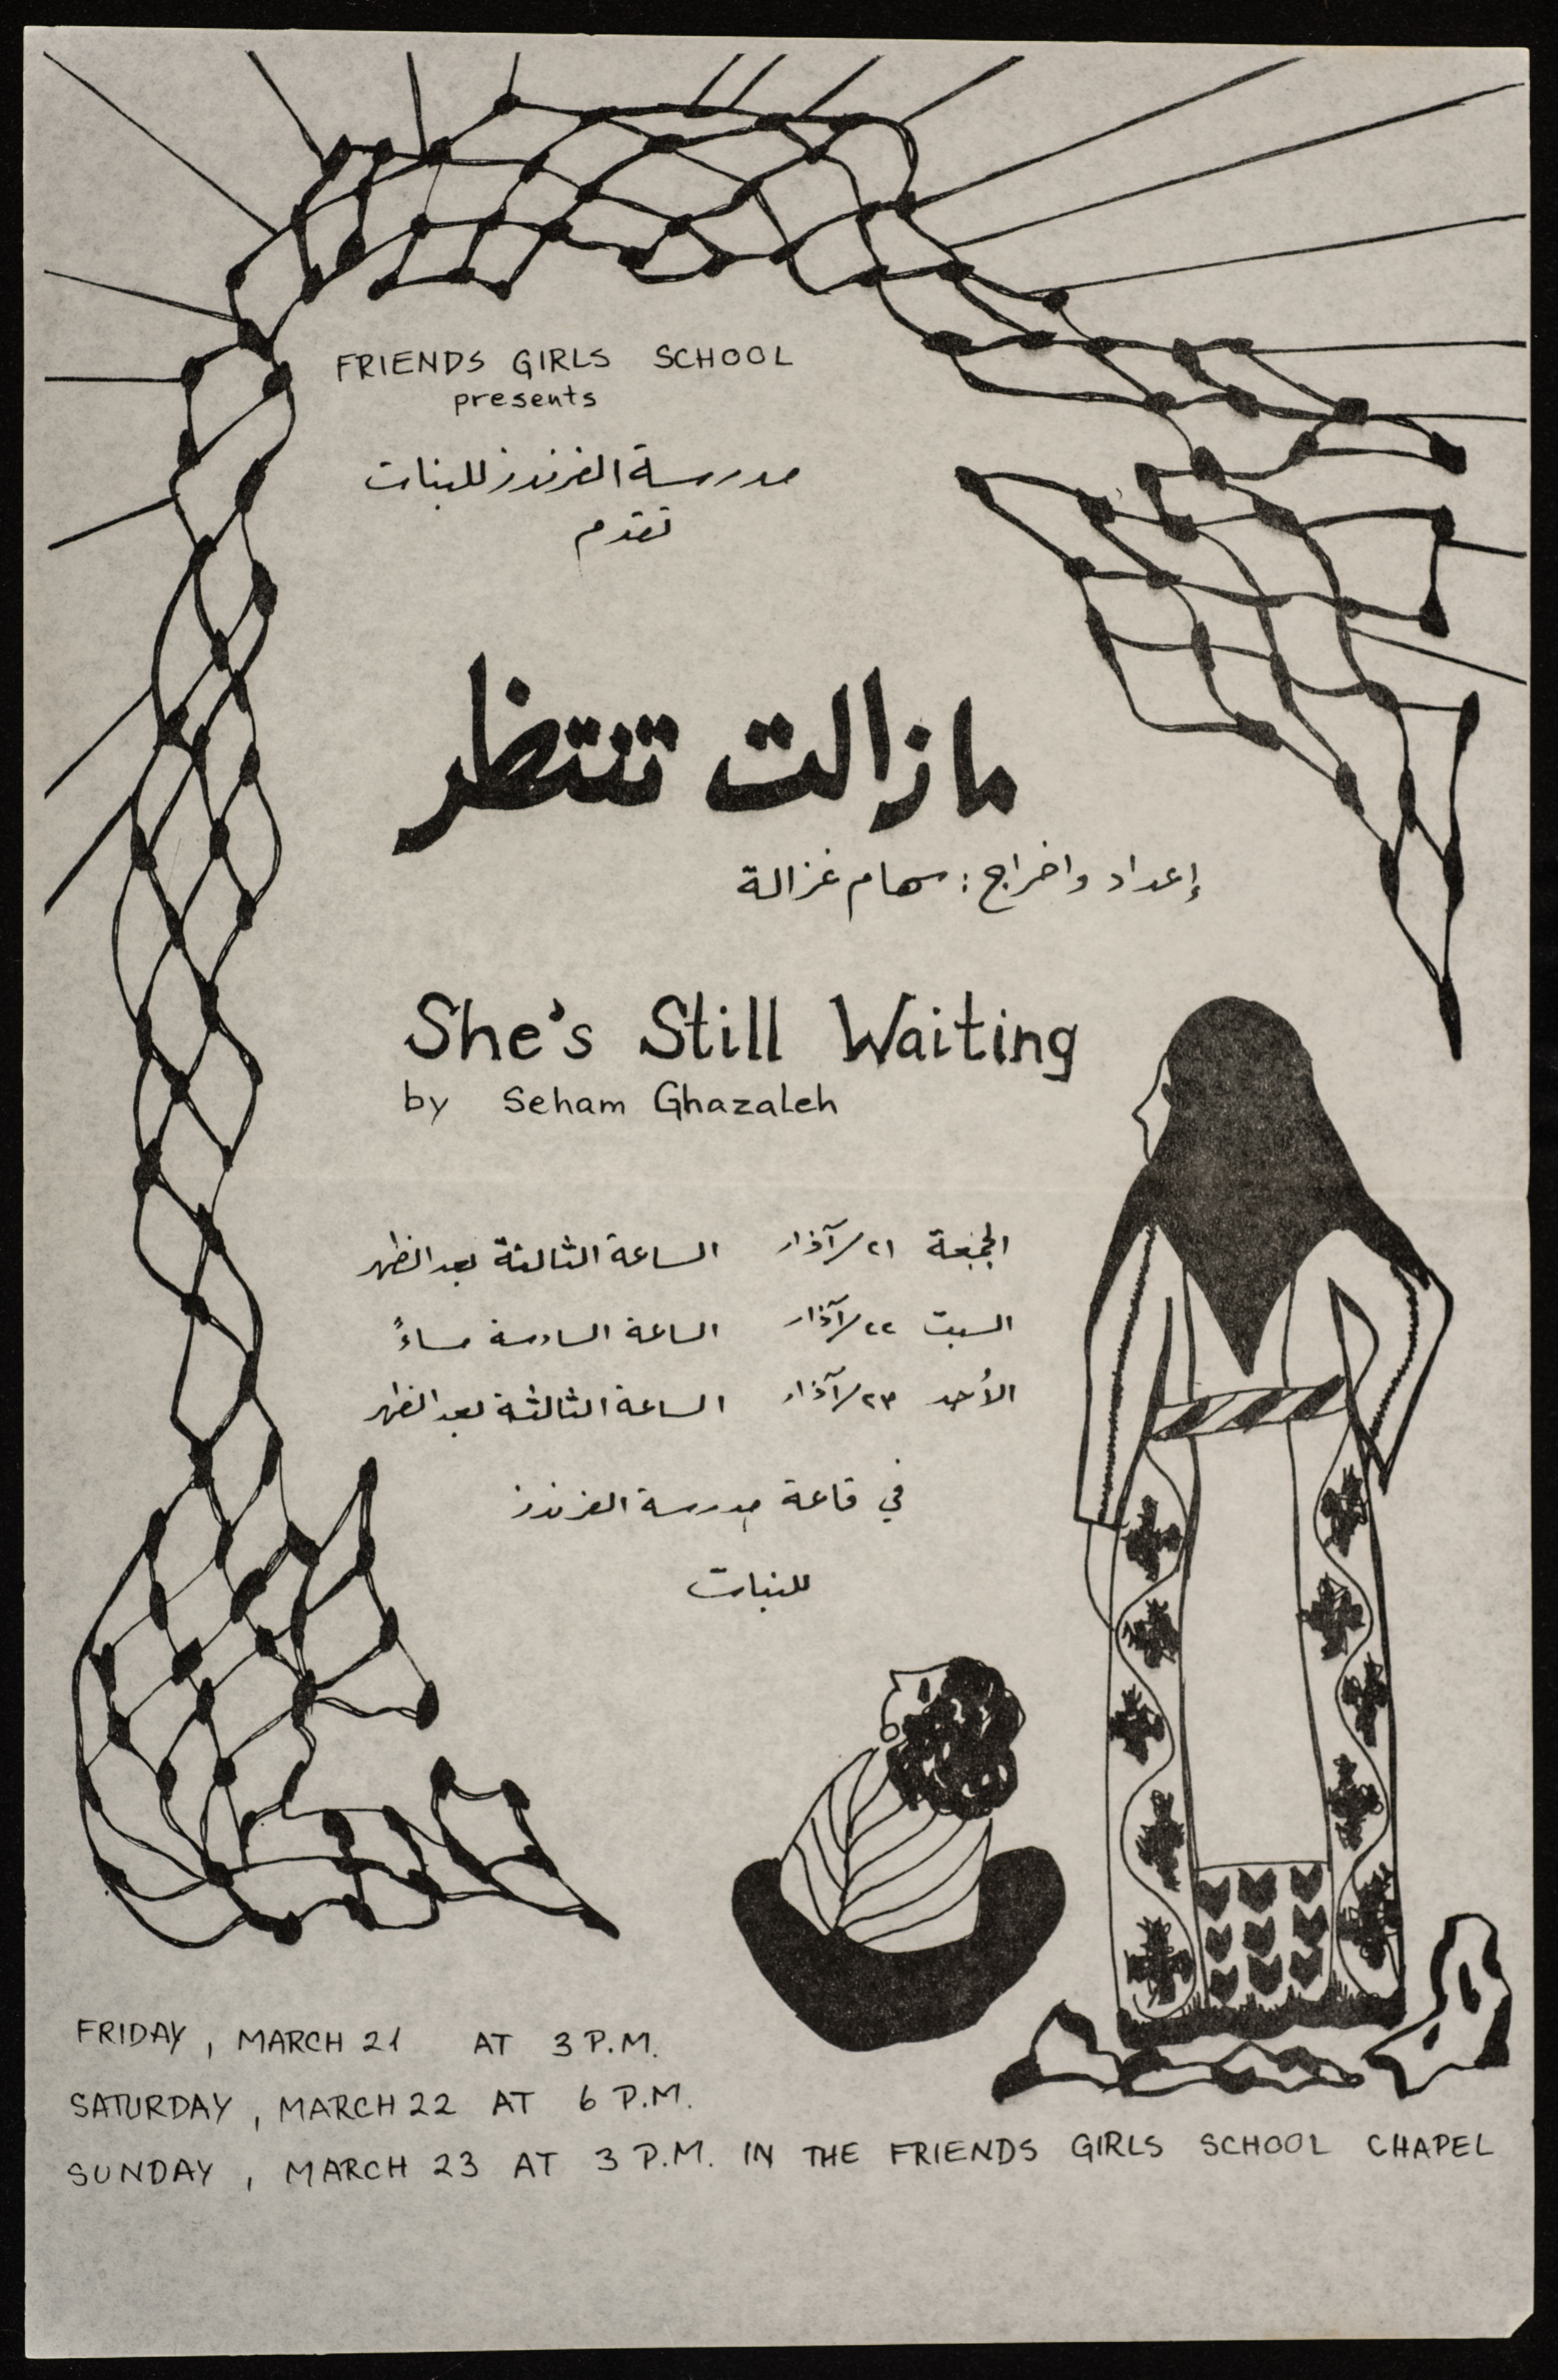 FRIENDS GIRLS SCHOOL
presents
مدرسة الفرندز للبنات
تقدم
مازالت تنتظر
إعداد واخراج : سهام غزالة
She's Still Waiting
by Seham Ghazaleh
الجمعة ٢١/آذار الساعة الثالثة بعد الظهر
السبت ٢٢/آذار الساعة السادسة مساءً
الأحد ٢٣/آذار الساعة الثالثة بعد الظهر
في قاعة مدرسة الفرندز
للبنات
FRIDAY, MARCH 21 AT 3 P.M.
SATURDAY, MARCH 22 AT 6 P.M.
SUNDAY, MARCH 23 AT 3 P.M. IN THE FRIENDS GIRLS SCHOOL CHAPEL